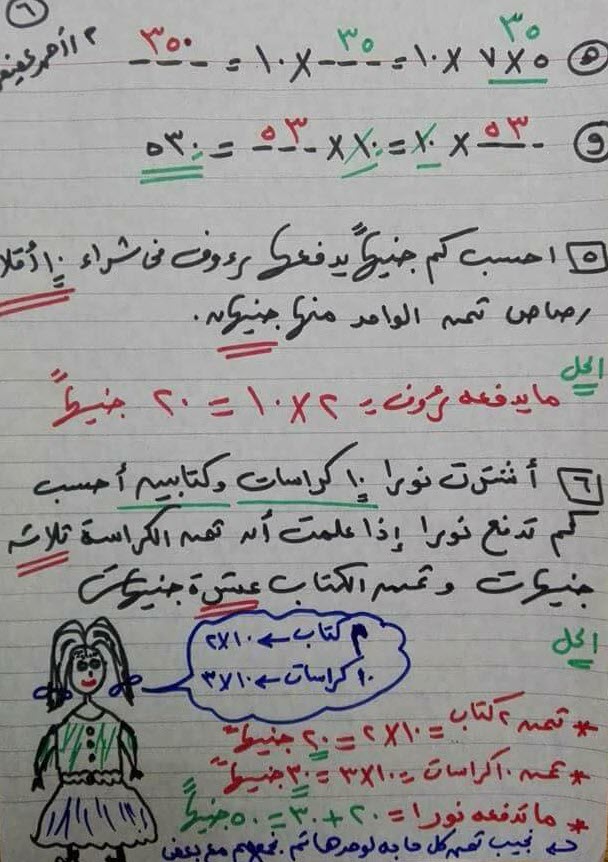 ٦
٢ / أحمد عفيفي
٣٠
هـ ٥ × ٧ × ١٠ = ٣٥ × ١٠ = ٣٥٠
و ٥٣ × ١٠ = ١٠ × ٥٣ = ٥٣٠
٥ احسب كم جنيهاً يدفعها رءوف فى شراء ١٠ أقلا
رصاص ثمن الواحد منها جنيهان.
الحل
ما يدفعه رءوف = ٢ × ١٠ = ٢٠ جنيهاً
٦ أشترت نورا ١٠ كراسات وكتابين أحسب
كم تدفع نورا إذا علمت أن ثمن الكراسة ثلاثة
جنيهات وثمن الكتاب عشرة جنيهات
الحل
٢ كتاب ← ١٠ × ٢
١٠ كراسات ← ١٠ × ٣
* ثمن ٢ كتاب = ١٠ × ٢ = ٢٠ جنيهاً
* ثمن ١٠ كراسات = ١٠ × ٣ = ٣٠ جنيهاً
* ما تدفعه نورا = ٢٠ + ٣٠ = ٥٠ جنيهاً
نجيب ثمن كل حاجه لوحدها ثم نجمعهم مع بعض